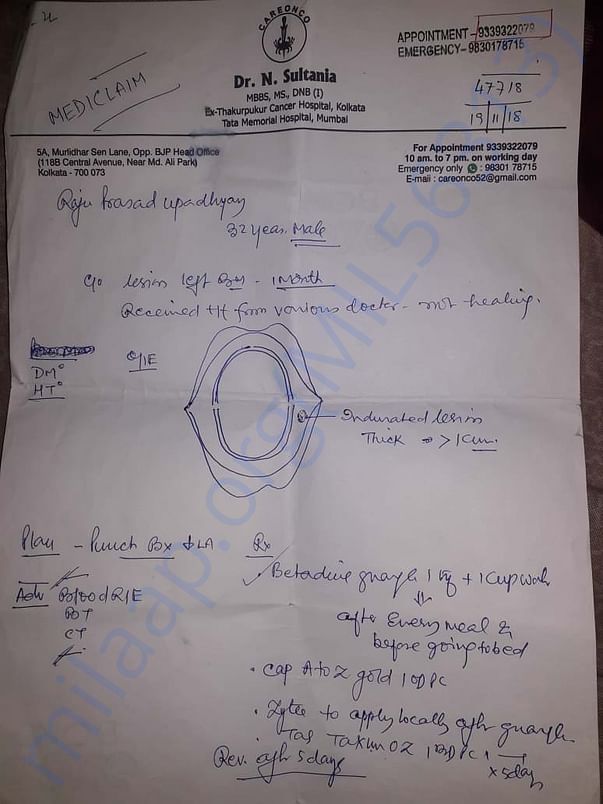 CAREONCO
APPOINTMENT - 9339322079
EMERGENCY - 9830178715
MEDICLAIM
Dr. N. Sultania
MBBS, MS., DNB (I)
Ex-Thakurpukur Cancer Hospital, Kolkata
Tata Memorial Hospital, Mumbai
47718
19/11/18
5A, Murlidhar Sen Lane, Opp. BJP Head Office
(118B Central Avenue, Near Md. Ali Park)
Kolkata - 700 073
For Appointment 9339322079
10 am. to 7 pm. on working day
Emergency only : 98301 78715
E-mail : careonco52@gmail.com
Raju Prasad Upadhyay
32 years. Male
C/o lesion left BM - 1 month
Received ttt from various doctor - not healing.
DM°
HT°
O/E
Indurated lesion
Thick → > 1 cm.
Plan - Punch Bx ↓ LA
Adv Blood R/E
BT
CT
Rx
Betadine guargle 1 + 1 Cup
after Every meal &
before going to bed
Cap A to Z gold 1 OD PC
Zytee to apply locally after guargle
Tab OZ 1 BD PC
x 5 days
Rev. after 5 days
milaap.org/MIL56